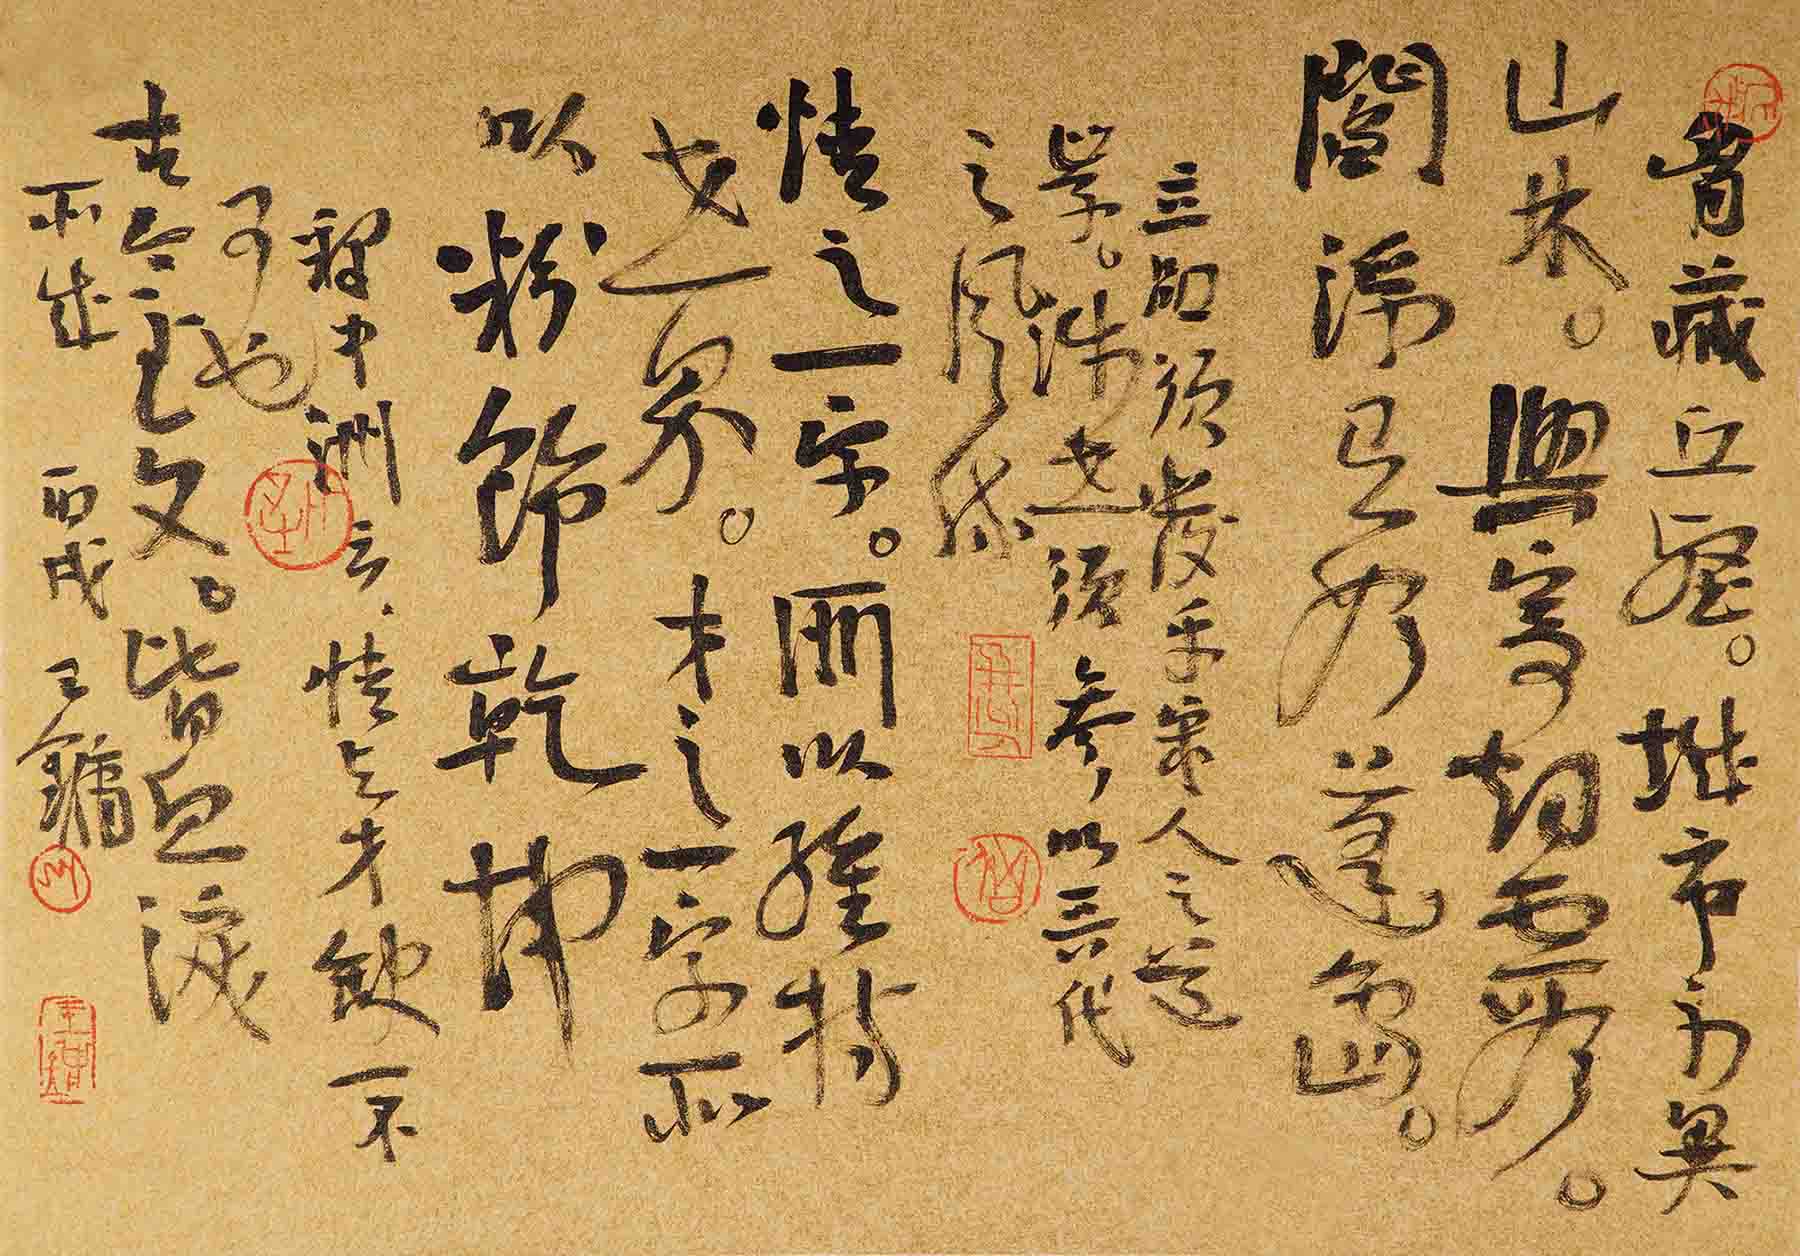 胷藏丘壑。城市不異
山林。興寄烟霞。
閻浮有如蓬島。
立品須發乎宋人之道
學。涉世須參以三代
之風流
情之一字。所以維持
世界。才之一字所
以粉飾乾坤
釋中洲云、情與才缺一不
可也
古今至文。皆血淚
所成 丙戌 王鏞